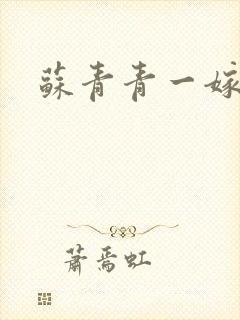 蘇青青一嫁
蕭焉虹